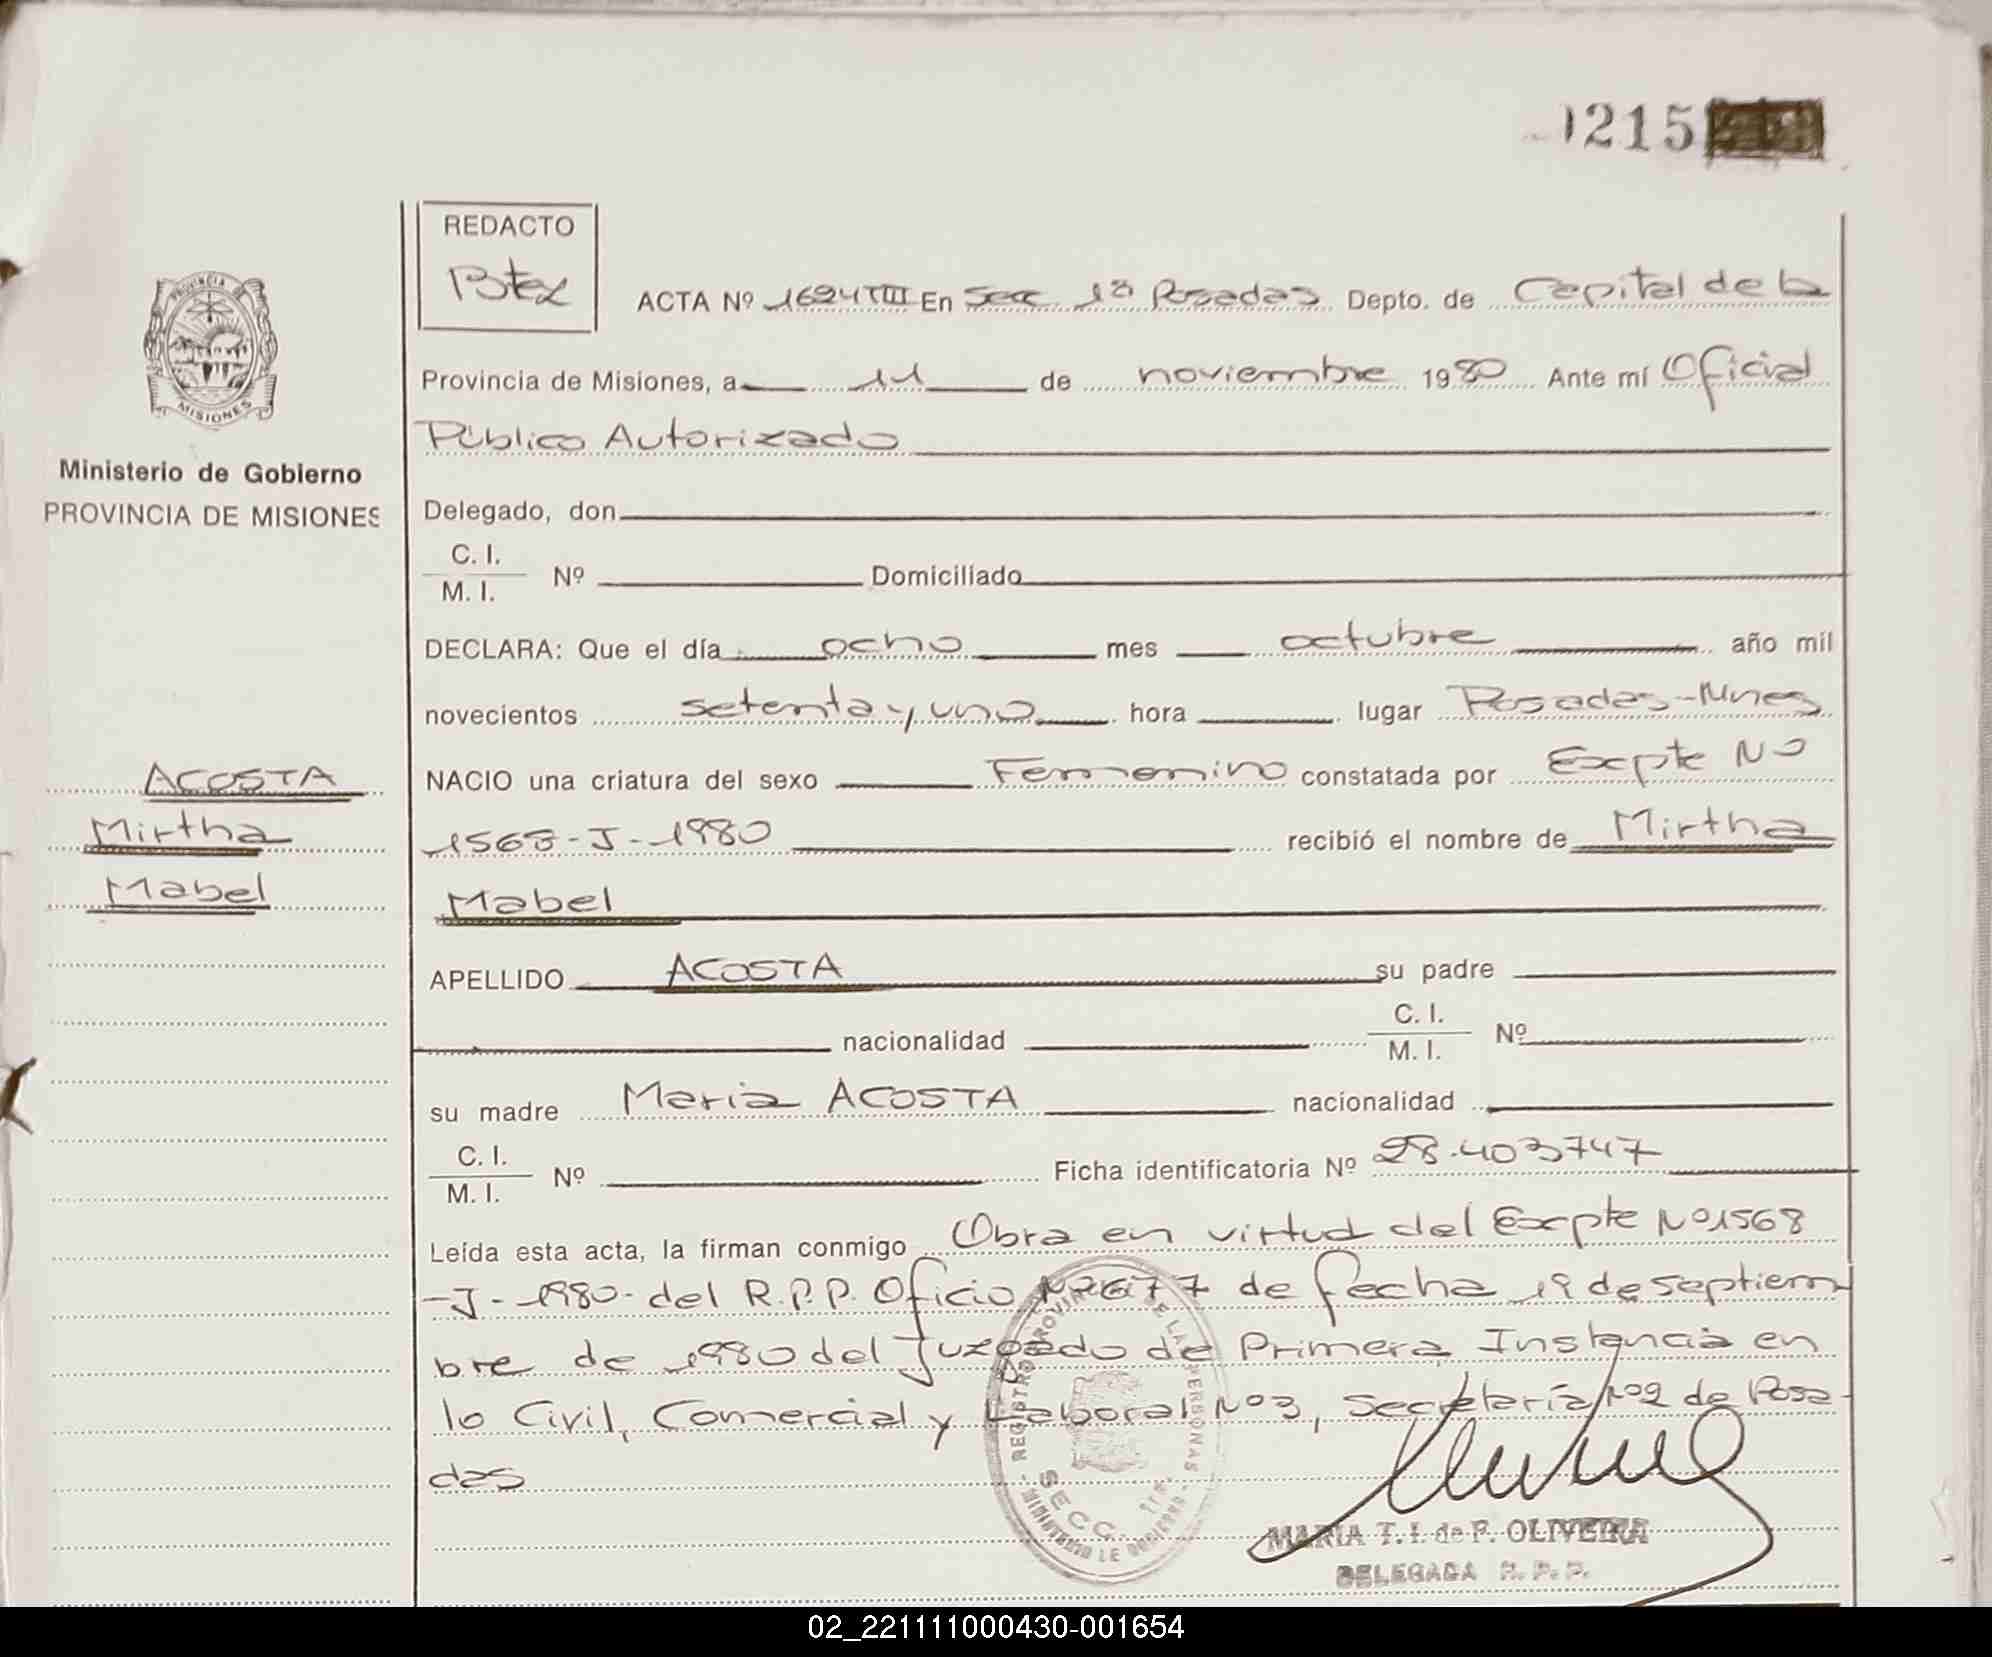 1215
REDACTO
PROVINCIA DE
MISIONES
ACTA Nº 1694 TIII En Secc. 1ª Posadas Depto. de Capital de la
Provincia de Misiones, a 11 de noviembre 1980 Ante mí Oficial
Público Autorizado
Ministerio de Gobierno
PROVINCIA DE MISIONES
Delegado, don
C. I.
M. I. Nº Domiciliado
DECLARA: Que el día ocho mes octubre año mil
novecientos setenta y uno hora lugar Posadas-Mnes
ACOSTA
Mirtha
Mabel
NACIO una criatura del sexo Femenino constatada por Expte Nº
1568-J-1980 recibió el nombre de Mirtha
Mabel
APELLIDO ACOSTA su padre
nacionalidad C. I.
M. I. Nº
su madre Maria ACOSTA nacionalidad
C. I.
M. I. Nº Ficha identificatoria Nº 28.403747
Leída esta acta, la firman conmigo Obra en virtud del Expte Nº1568
-J-1980-del R.P.P. Oficio Nº2677 de fecha 19 de septiem
bre de 1980 del Juzgado de Primera Instancia en
lo Civil, Comercial y Laboral Nº3, Secretaría Nº2 de Posa-
das
REGISTRO PROVINCIAL DE LAS PERSONAS
SECC. 1ra.
MINISTERIO DE GOBIERNO
MARIA T. I. de P. OLIVEIRA
DELEGADA R. P. P.
02_221111000430-001654